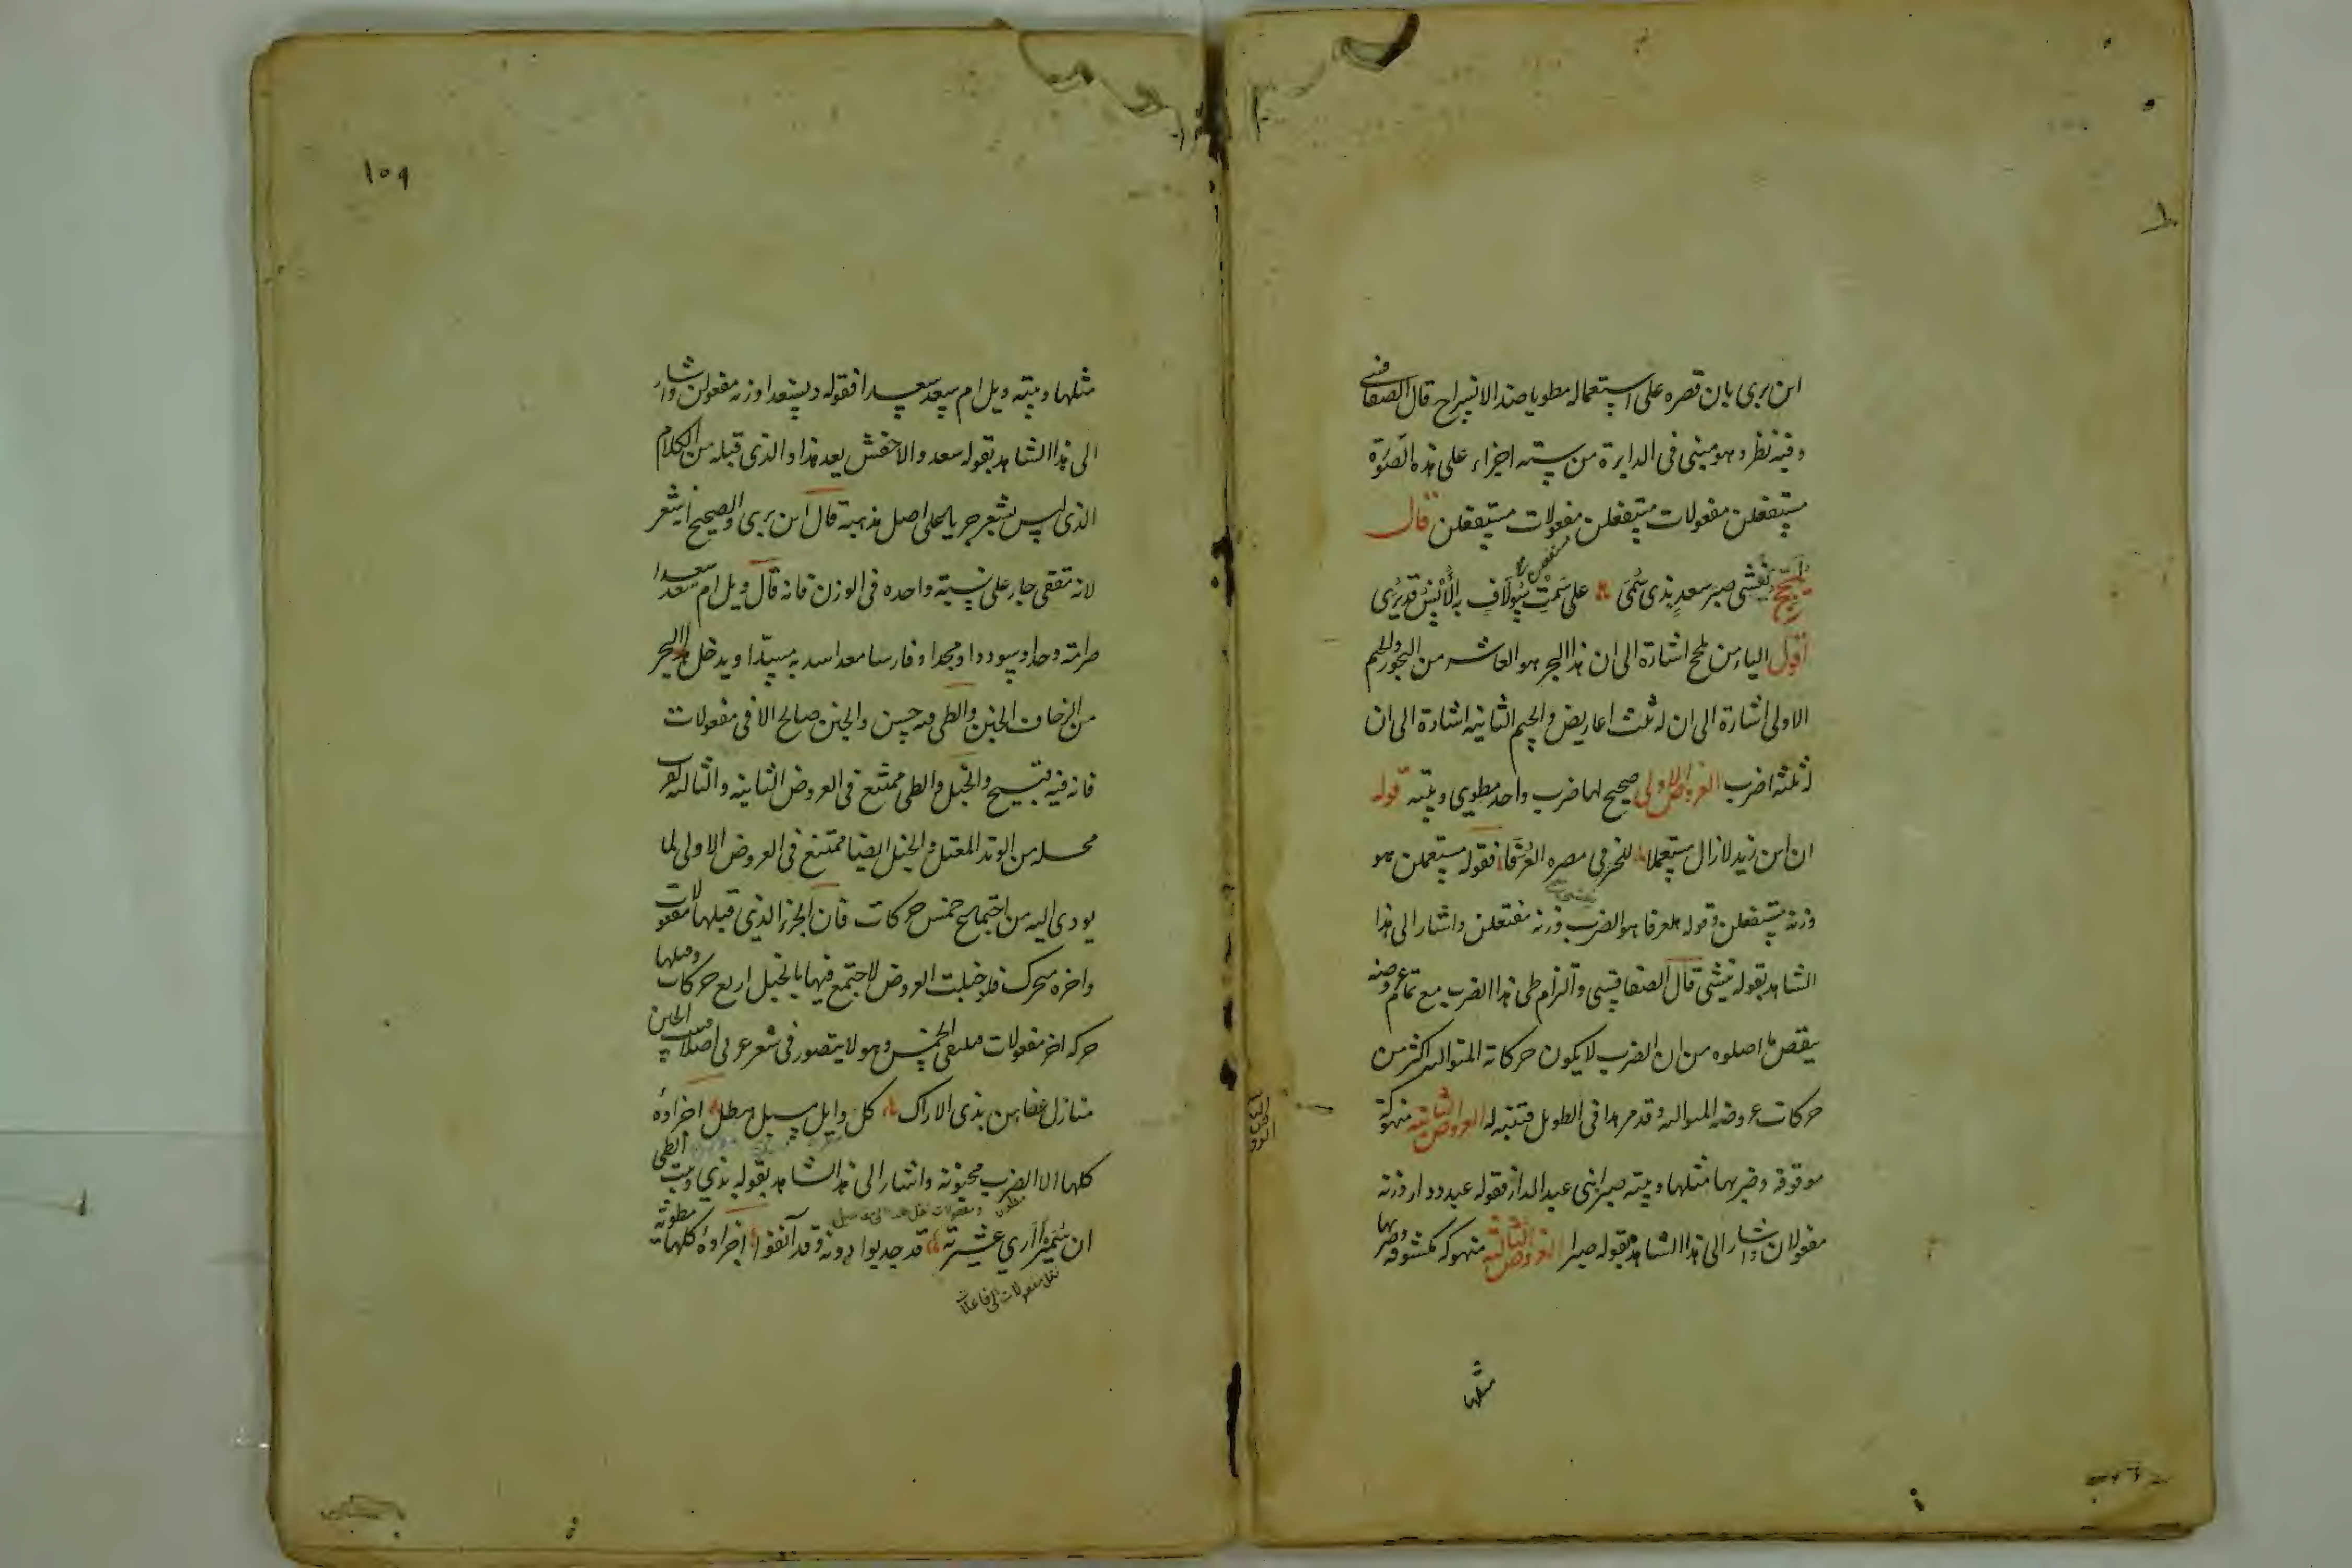 ابن بري بان قصره على استعماله مطويا ضد الانسراح قال الصفاقسي
وفيه نظر وهو مبني في الدايرة من ستة اجزاء على هذه الصورة
مستفعلن مفعولات مستفعلن مفعولات مستفعلن قال
تغشى صبر سعد بذي سمى على سمت سولاف به الانس قد يرى
اقول الياء من اشارة الى ان هذا البحر هو العاشر من البحور والجيم
الاولى اشارة الى ان له ثلث اعاريض والجيم الثانية اشارة الى ان
له ثلثة اضرب العروض الاولى صحيح لها ضرب واحد مطوي وبيته قوله
ان ابن زيد لازال مستعملا للخير في مصره العرفا فقوله مستعملن هو
وزنه مستفعلن وقوله هلعرفا هو الضرب وزنه مفتعلن واشار الى هذا
الشاهد بقوله قال الصفاقسي والتزام طي هذا الضرب مع تمام عروضه
ينقض ما اصلوه من ان الضرب لا يكون حركاته المتواليه اكثر من
حركات عروضه المتواليه وقد مر هذا في الطويل فتنبه له العروض الثانية منهوكة
موقوفة وضربها مثلها وبيته صبرا بني عبد الدار فقوله عبد ددار وزنه
مفعولان واشار الى هذا الشاهد بقوله صبرا العروض الثالثة منهوكه مكشوفه وضربها
مثلها
١٥٩
مثلها وبيته ويل ام سعد سعدا فقوله دسعدا وزنه مفعولن واشار
الى هذا الشاهد بقوله سعد والاخفش يعد هذا والذي قبله من الكلام
الذي ليس بشعر جريا على اصل مذهبه قال ابن بري والصحيح انه شعر
لانه مقفى جار على نسبة واحده في الوزن فانه قال ويل ام سعد سعدا
صرامة وحدا وسوددا ومجدا وفارسا معدا سد به مسدا ويدخل هذا البحر
من الزحاف الخبن والطي فيه حسن والخبن صالح الا في مفعولات
فانه فيه قبيح والخبل والطي ممتنع في العروض الثانيه والثالثه لقرب
محله من الوتد المعتل والخبل ايضا ممتنع في العروض الاولى لما
يودي اليه من اجتماع خمس حركات فان الجزء الذي قبلها مفعولات
واخره متحرك فلو خبلت العروض لاجتمع فيها بالخبل اربع حركات وقبلها
حركة اخر مفعولات فيلتقي الخمس وهو لا يتصور في شعر عربي اصلا الخبن
منازل عفاهن بذي الاراك كل وابل مسبل هطل اجزاوه
كلها الا الضرب مخبونة واشار الى هذا الشاهد بقوله بذي وبيت الطي
ان سميرا ارى عشيرته قد حدبوا دونه وقد انفوا اجزاوه كلها مطوية
نقل مفعولات الى فاعلات